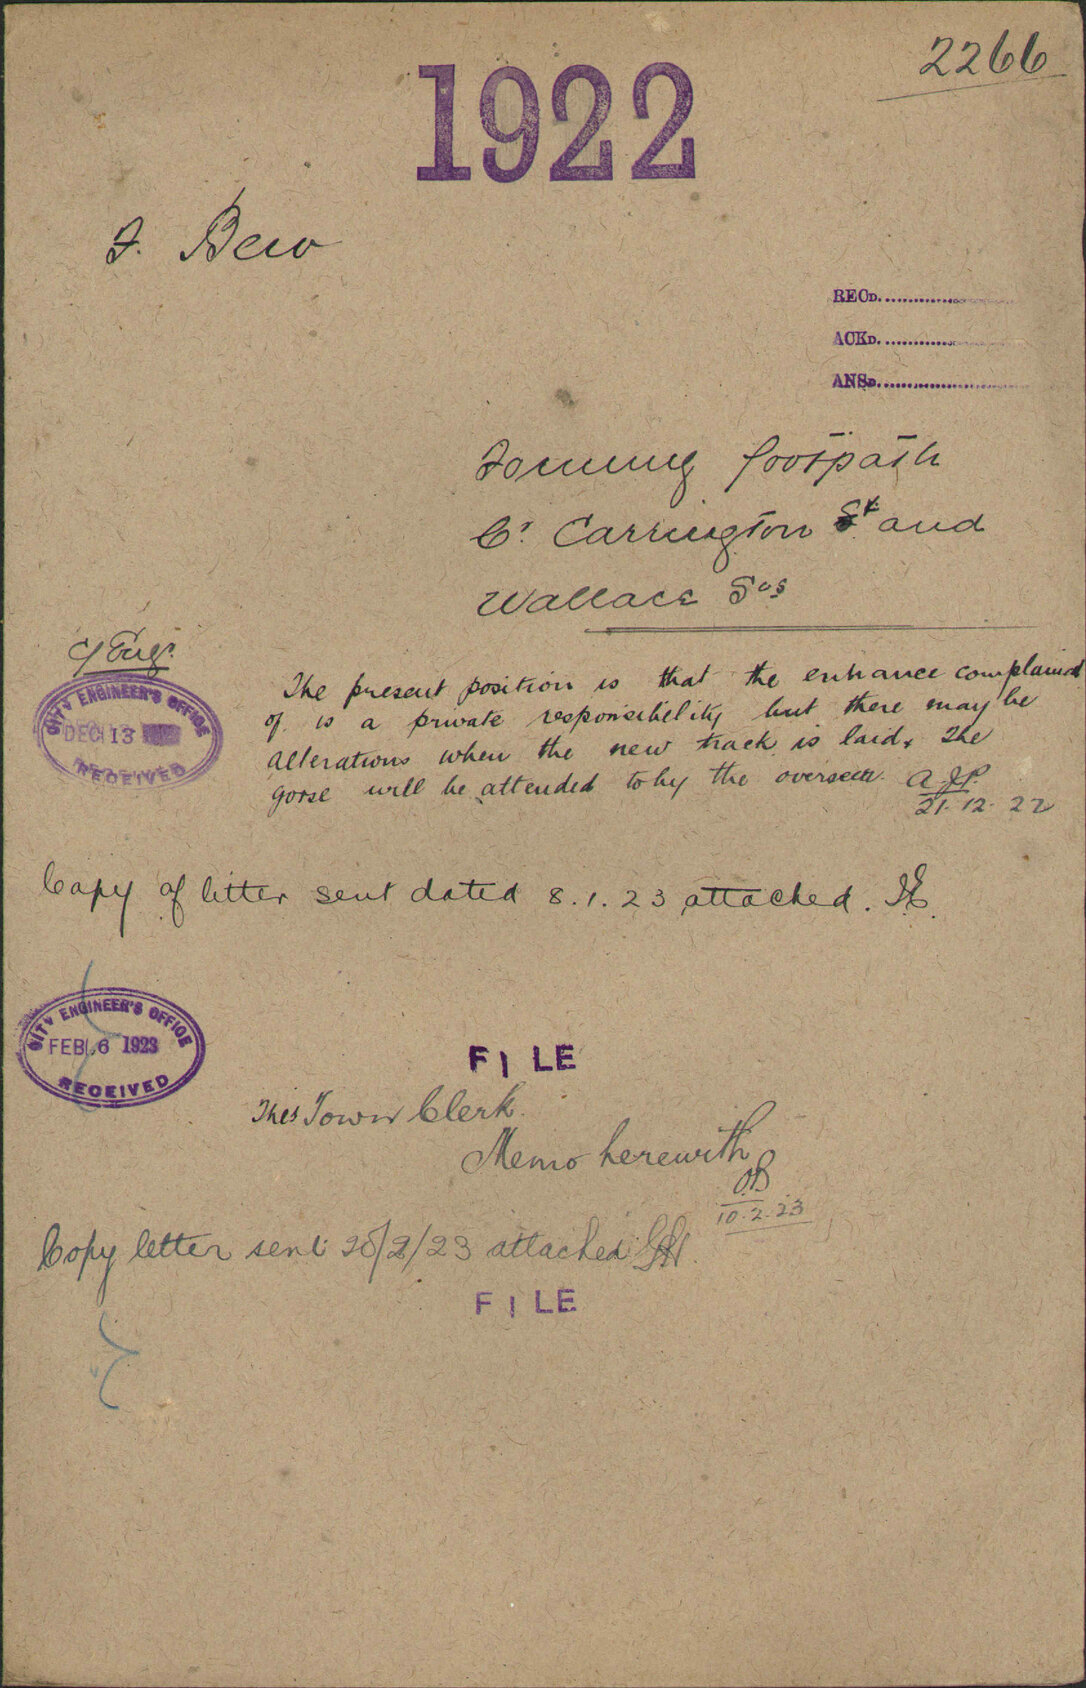 2266
1922
F. Bew
RECD.
ACKD.
ANSD.
Forming footpath
Cr. Carrington St and
Wallace Sts
C/Engr.
CITY ENGINEER'S OFFICE
DEC 13
RECEIVED
The present position is that the entrance complained
of is a private responsibility but there may be
alterations when the new track is laid. The
gorse will be attended to by the overseer. A.J.P.
21.12.22
Copy of letter sent dated 8.1.23 attached.
CITY ENGINEER'S OFFICE
FEB 6 1923
RECEIVED
FILE
The Town Clerk.
Memo herewith
10.2.23
Copy letter sent 20/2/23 attached
FILE